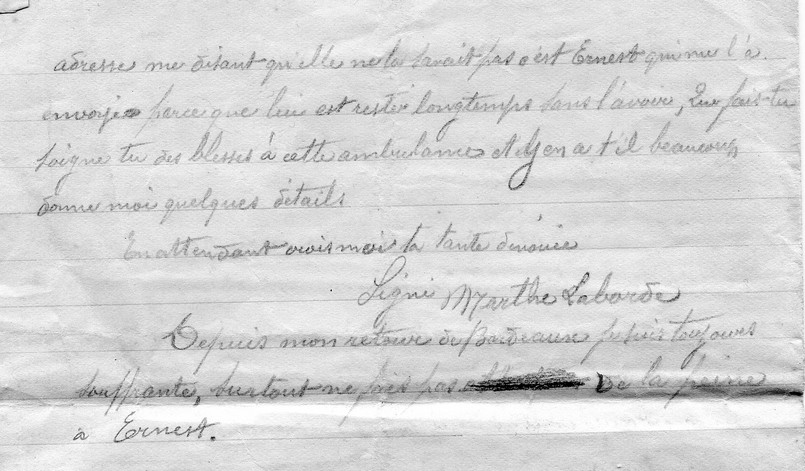 adresse me disant qu'elle ne la savait pas c'est Ernest qui me l'a
envoyée parce que lui est resté longtemps sans l'avoir, Que fais-tu
soigne tu des blessés à cette ambulance et y en a t'il beaucoup
donne moi quelques détails
En attendant crois moi ta tante dévouée
Signé Marthe Laborde
Depuis mon retour de Bordeaux je suis toujours
souffrante, surtout ne fais pas de la peine
à Ernest.